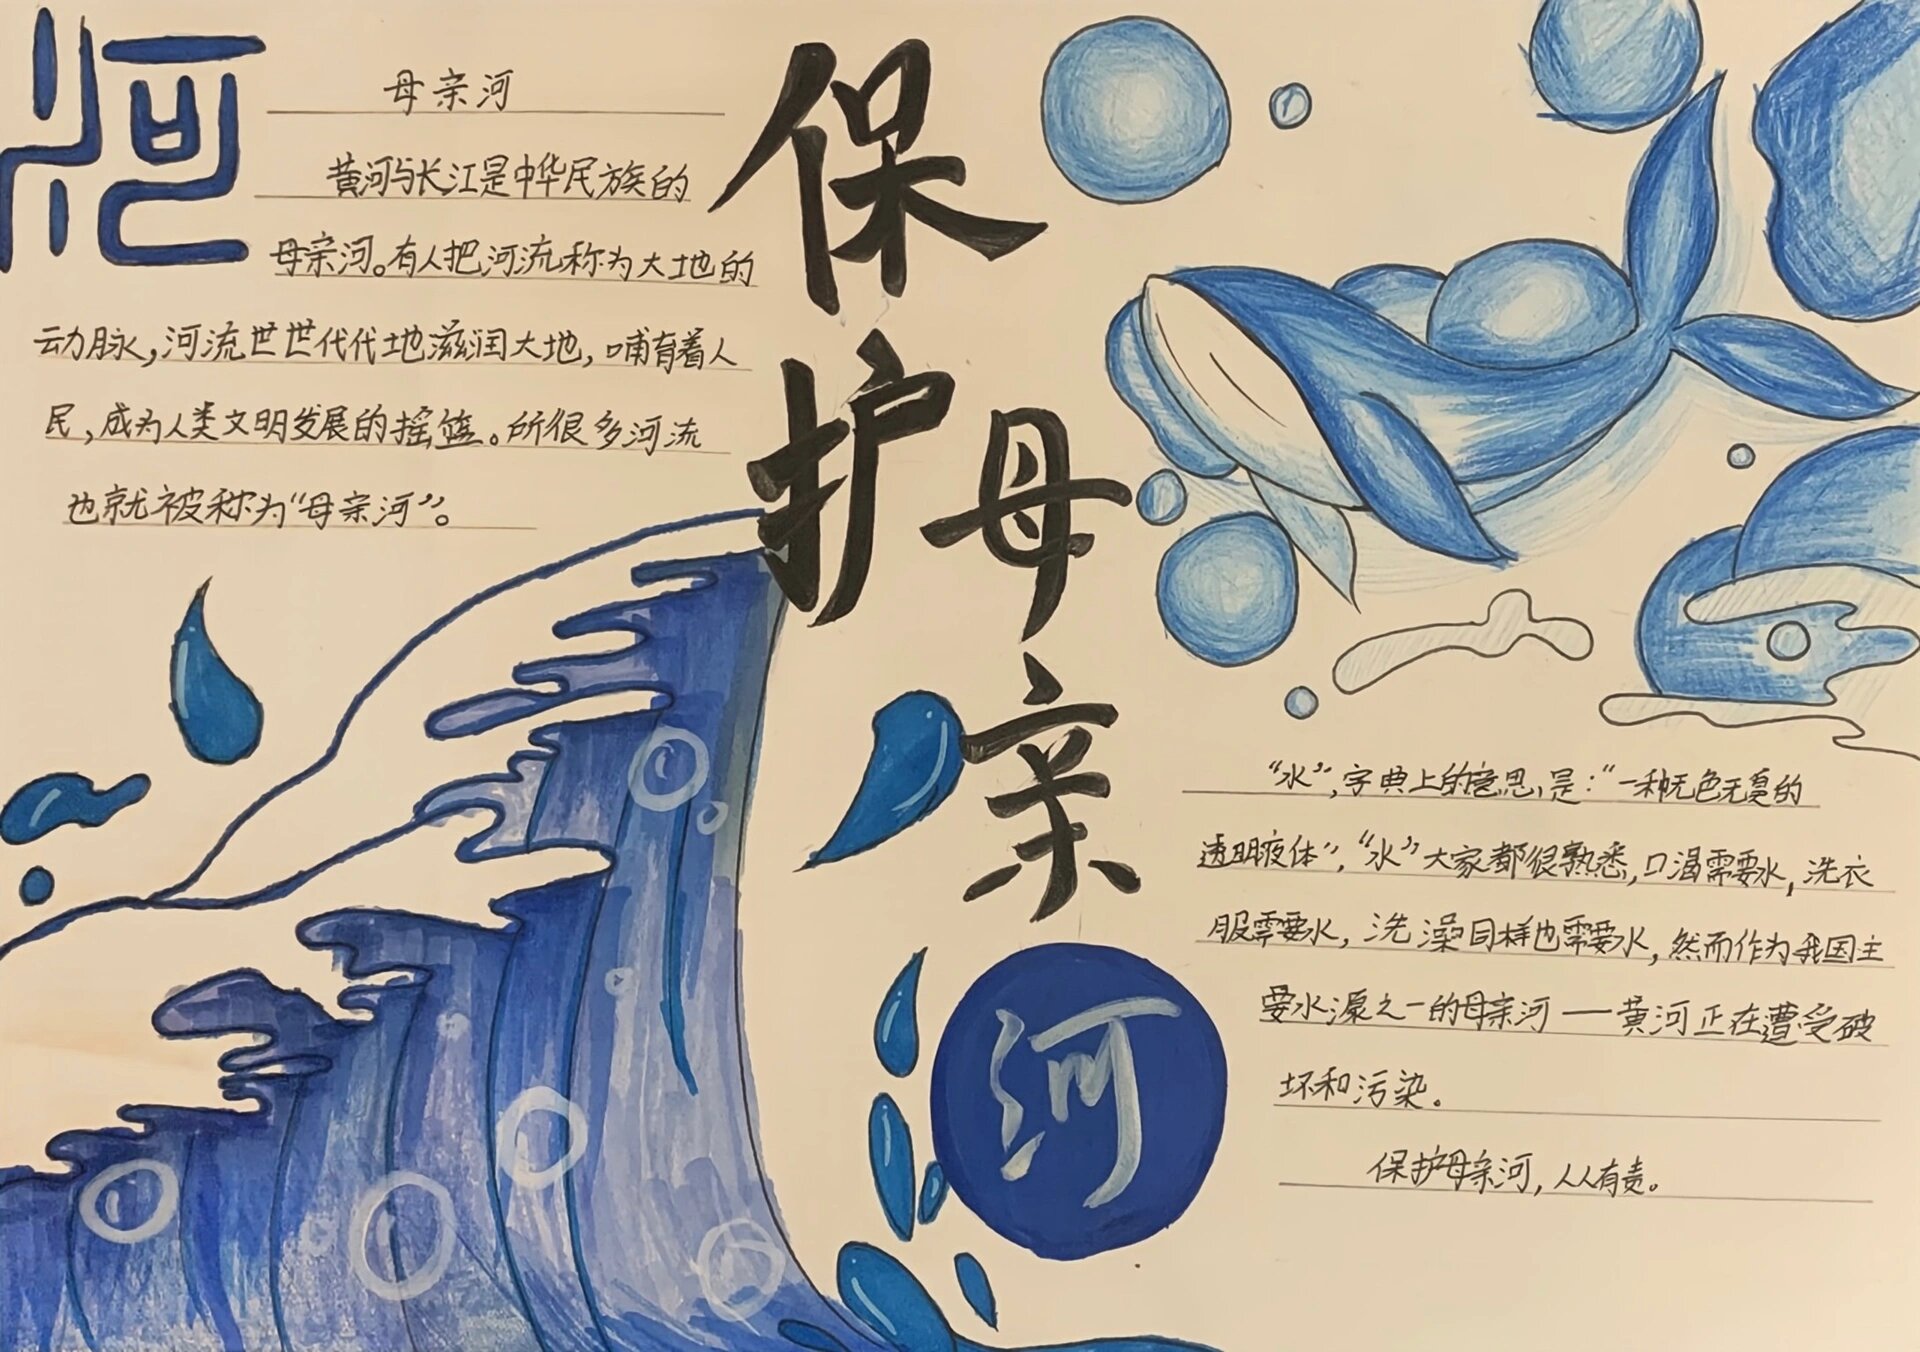 河
母亲河
黄河与长江是中华民族的
母亲河。有人把河流称为大地的
动脉,河流世世代代地滋润大地,哺育着人
民,成为人类文明发展的摇篮。所很多河流
也就被称为“母亲河”。
保护母亲河
“水”,字典上的意思,是:“一种无色无臭的
透明液体”,“水”大家都很熟悉,口渴需要水,洗衣
服需要水,洗澡同样也需要水,然而作为我国主
要水源之一的母亲河——黄河正在遭受破
坏和污染。
保护母亲河,人人有责。